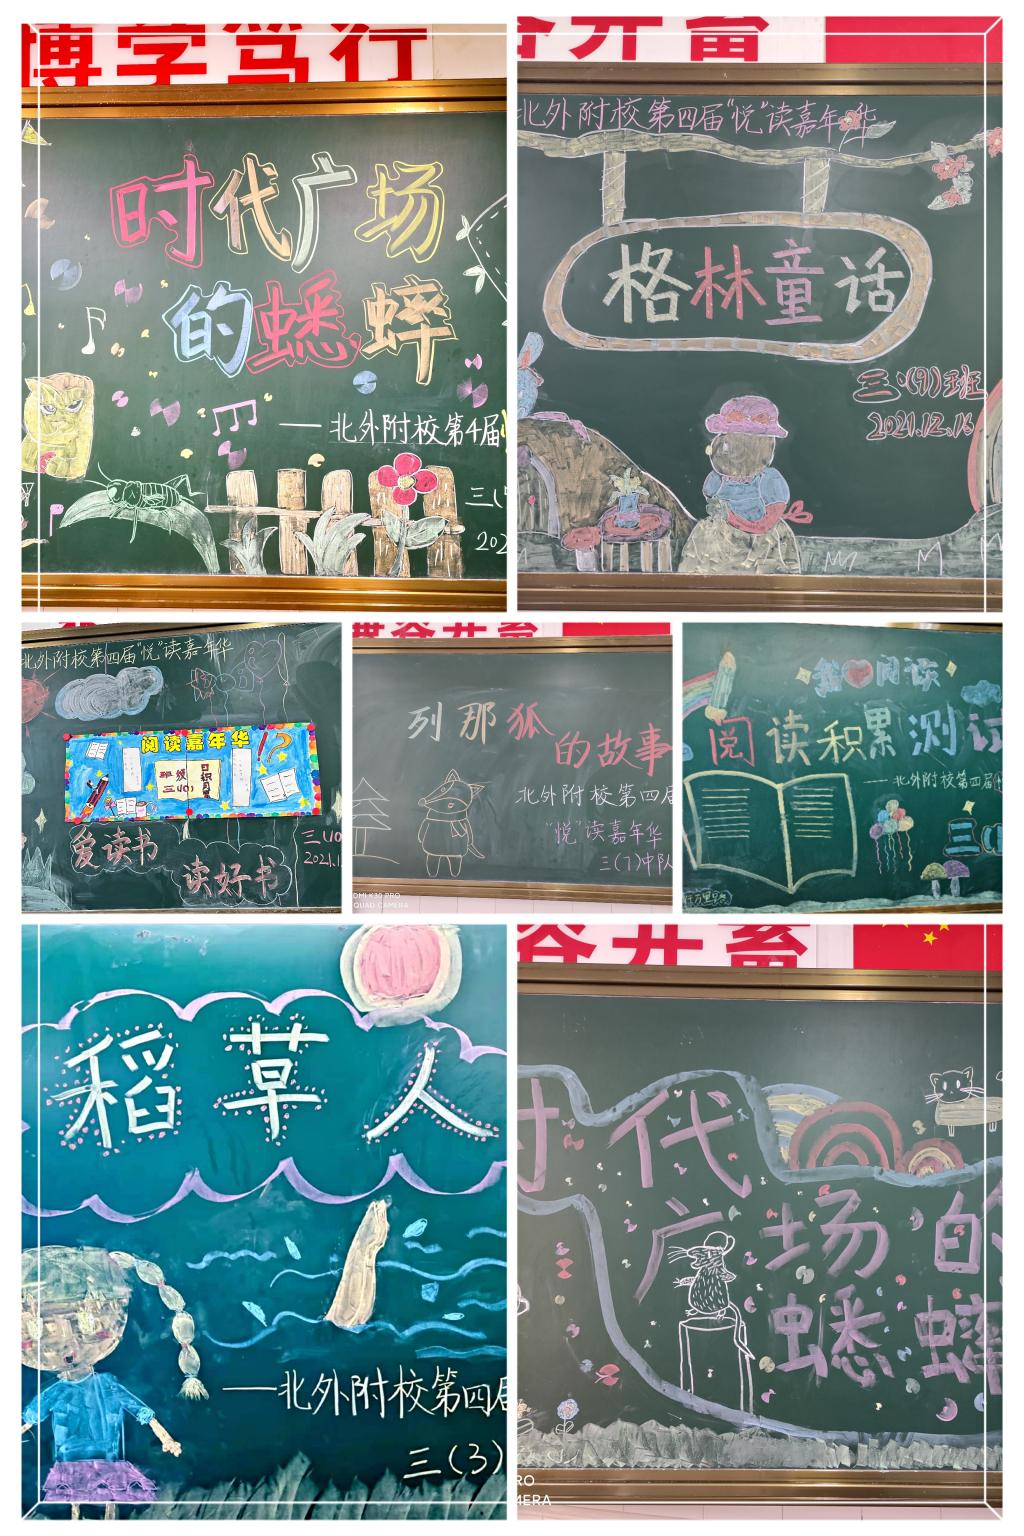 博学笃行
时代广场
的蟋蟀
——北外附校第4届
三(
202
谷并畜
北外附校第四届“悦”读嘉年华
格林童话
三(9)班
2021.12.16
北外附校第四届“悦”读嘉年华
阅读嘉年华!?
爱读书
读好书
三(10
2021.1
列那狐
的故事
北外附校第四届
“悦”读嘉年华
三(7)中队
我 阅读
阅读积累测
——北外附校第四届
三(
稻草人
——北外附校第四届
三(3)
谷并畜
时代
广场的
蟋蟀